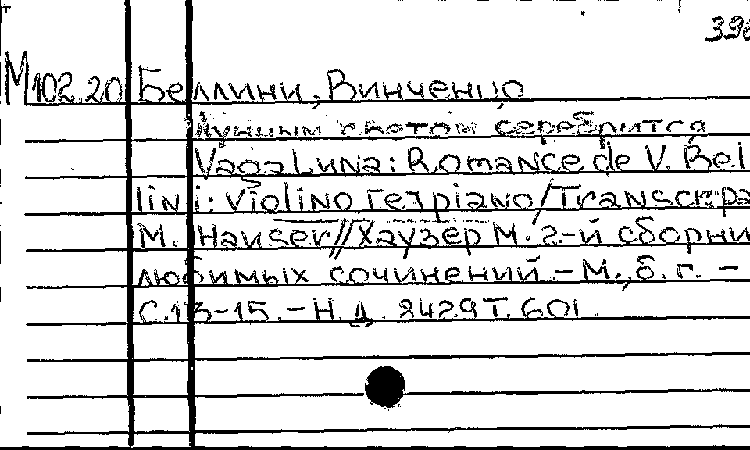 396
М102.20 Беллини, Винченцо
Лунным светом серебрится
Vaga Luna: Romance de V. Bel
lini: Violino геt piano/Transcr. pa
M. Hauser//Хаузер М. 2-й сборни
любимых сочинений - М., б. г. -
С.13-15. - Н. д. 8429 Т. 601